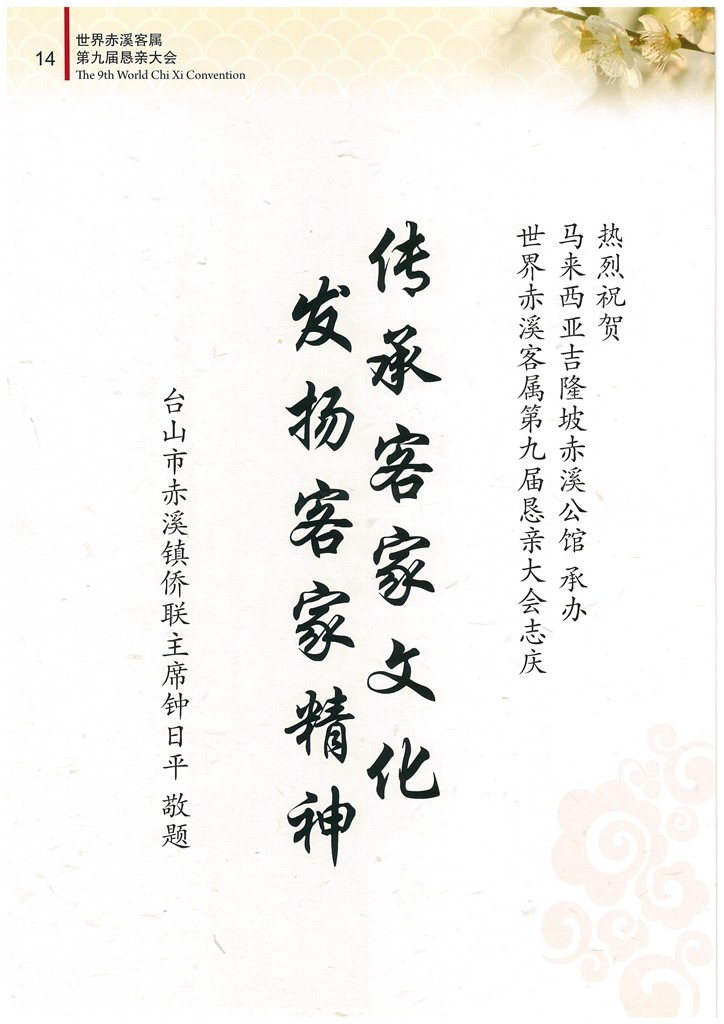 14
世界赤溪客属
第九届恳亲大会
The 9th World Chi Xi Convention
热烈祝贺
马来西亚吉隆坡赤溪公馆 承办
世界赤溪客属第九届恳亲大会志庆
传承客家文化
发扬客家精神
台山市赤溪镇侨联主席钟日平 敬题